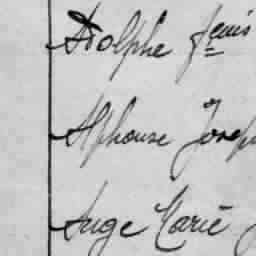 Adolphe
Alphonse Josep
Ange Marie